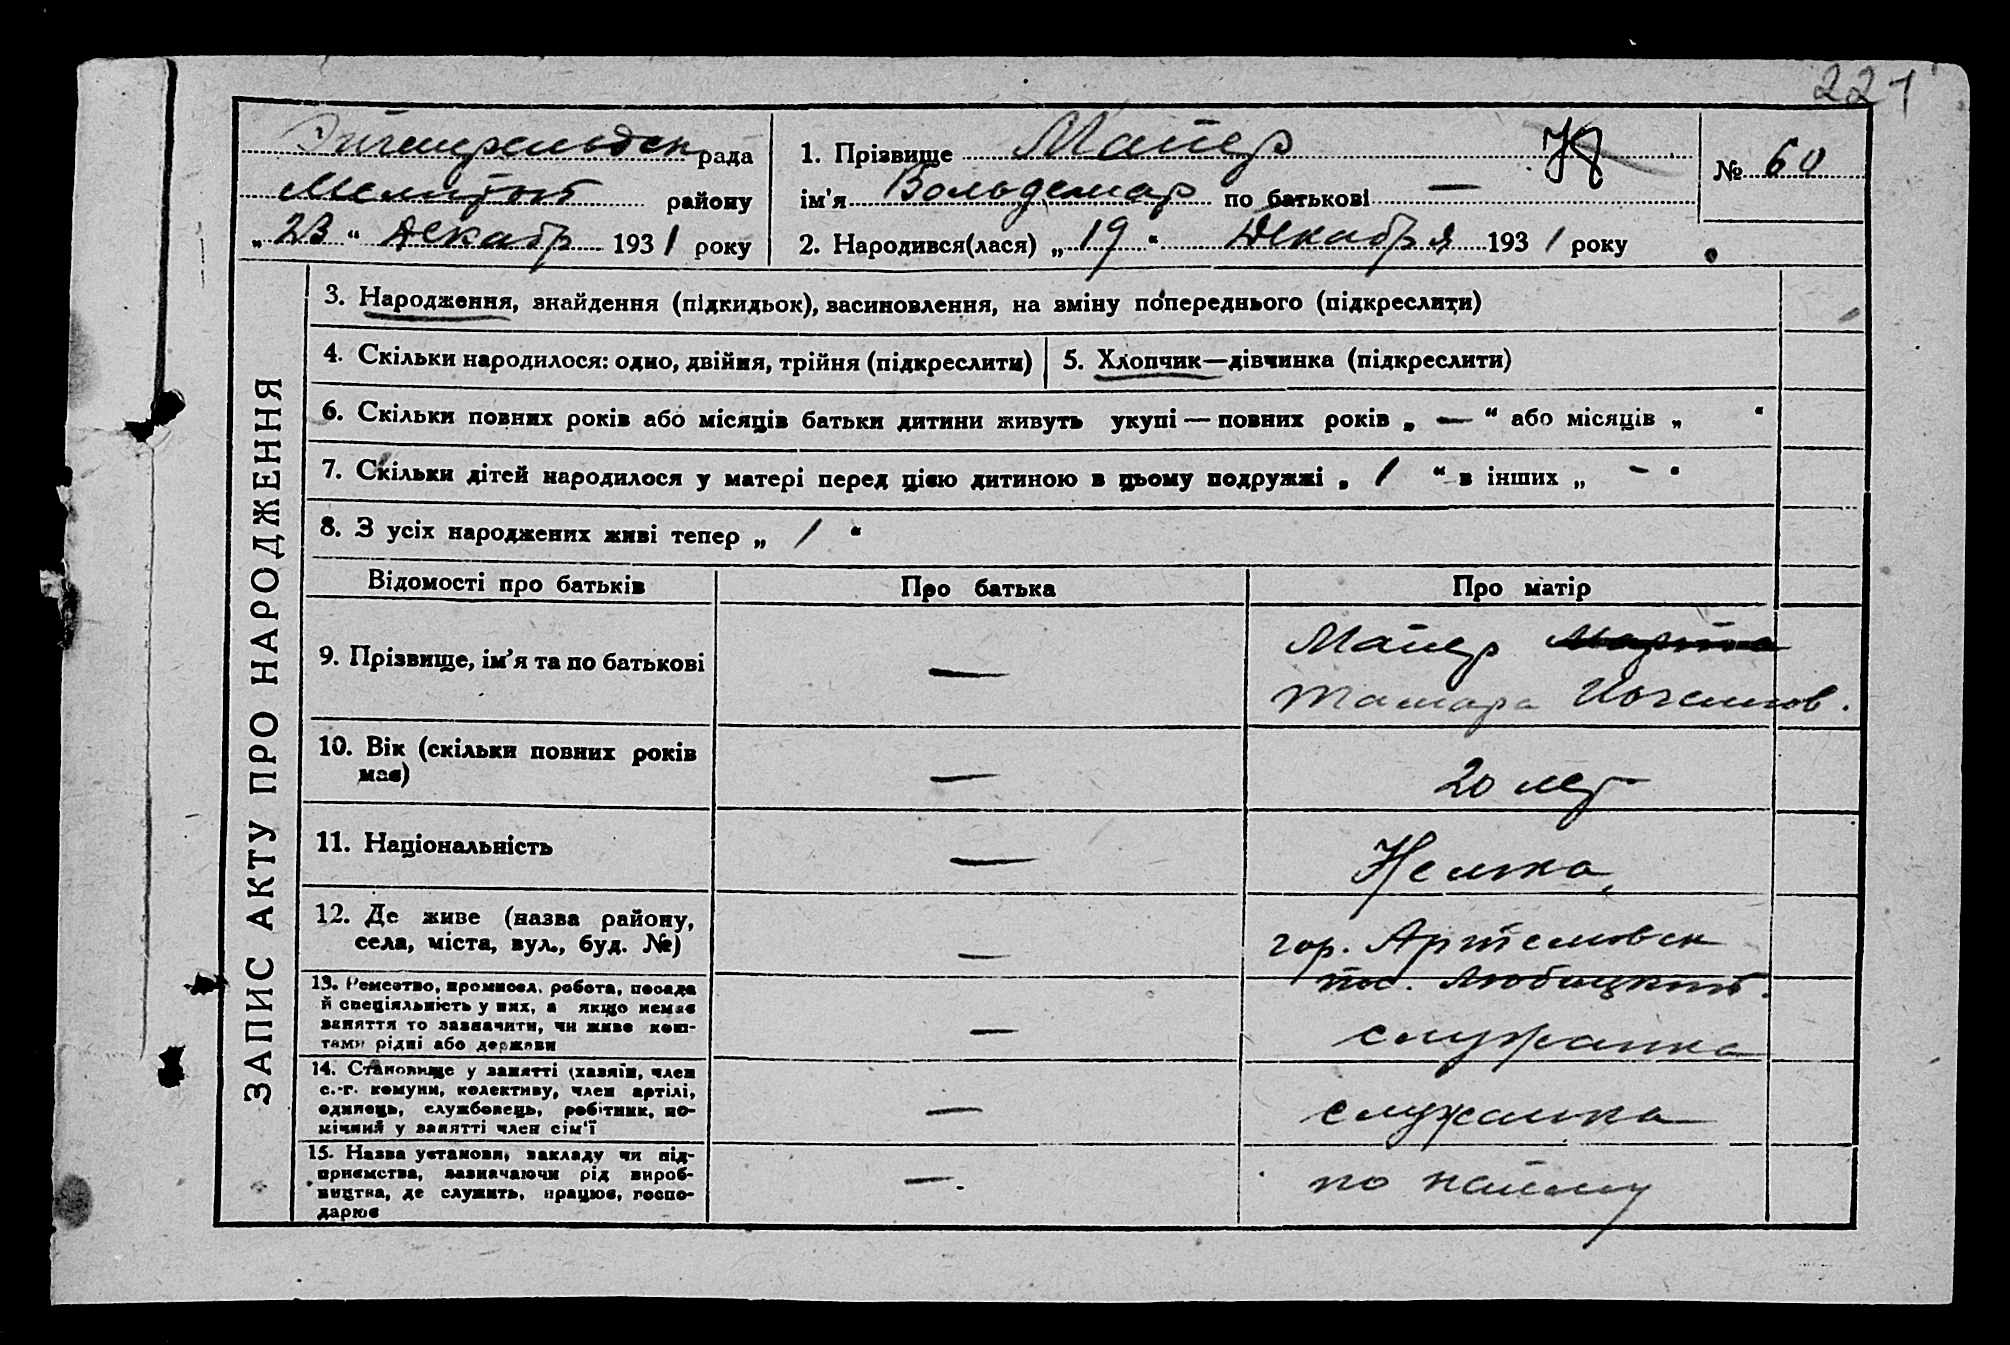 221
рада
1. Прізвище Майер
№ 60
Мелитоп району
ім'я Вольдемар по батькові —
„23“ Декабр 1931 року
2. Народився(лася) „19“ Декабря 1931 року
ЗАПИС АКТУ ПРО НАРОДЖЕННЯ
3. Народження, знайдення (підкидьок), засиновлення, на зміну попереднього (підкреслити)
4. Скільки народилося: одно, двійня, трійня (підкреслити)
5. Хлопчик—дівчинка (підкреслити)
6. Скільки повних років або місяців батьки дитини живуть укупі — повних років „ — “ або місяців „ “
7. Скільки дітей народилося у матері перед цією дитиною в цьому подружжі „ 1 “ в інших „ — “
8. З усіх народжених живі тепер „ 1 “
Відомості про батьків
Про батька
Про матір
9. Прізвище, ім'я та по батькові
—
Майер Марта
Тамара
10. Вік (скільки повних років
має)
—
20 лет
11. Національність
—
Немка
12. Де живе (назва району,
села, міста, вул., буд. №)
—
гор. Артемовск
пос.
13. Ремество, промисел, робота, посада
й спеціяльність у них, а якщо немає
заняття то зазначити, чи живе кош-
тами рідні або держави
—
служанка
14. Становище у занятті (хазяїн, член
с.-г. комуни, колективу, член артілі,
одинець, службовець, робітник, по-
мічний у занятті член сім'ї
—
служанка
15. Назва установи, закладу чи під-
приємства, зазначаючи рід вироб-
ництва, де служить, працює, госпо-
дарює
—.
по найму